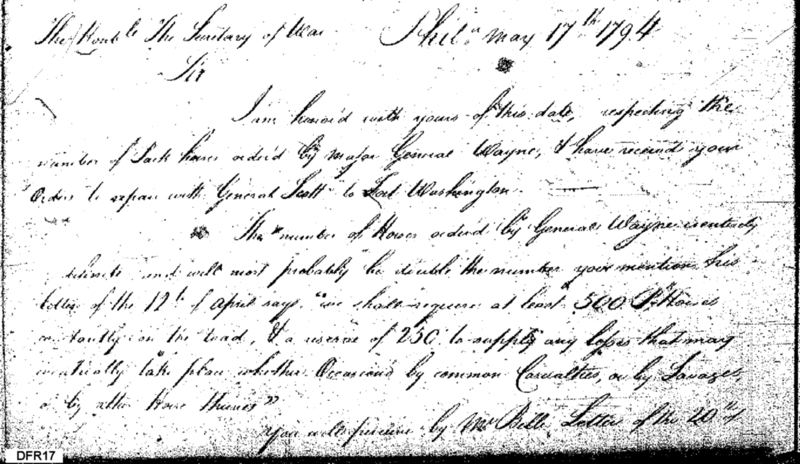 The Honble The Secretary of War Phila. May 17th 1794
Sir
I am honor'd with yours of this date, respecting the
number of Pack horses order'd by Major General Wayne, & have received your
Orders to repair with General Scott to Fort Washington.
The number of Horses order'd by General Wayne is entirely
and will most probably be double the number you mention, his
letter of the 12th of April says "we shall require at least 500 P. Horses
constantly on the road, & a reserve of 250 to supply any losses that may
eventually take place whether Occasion'd by common Casualties, or by Savages,
or by other Horse thieves"
You will perceive by Mr Bells Letter of the 20th of
DFR17